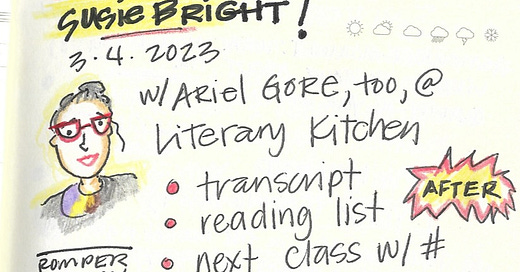 SUSIE BRIGHT!
3.4.2023
w/ ARIEL GORE, too, @
Literary Kitchen
• transcript
• reading list
AFTER
• next class w/ #
ROMPER